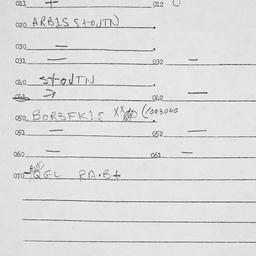 011 + 012
020 ARB1S StOJTN
030 —
031 — 032 —
040 StOJTN
041 > 042 —
050 BOR3FK1S XX (1093040
051 — 052 —
060 — 061 —
070 QGL RA·B+